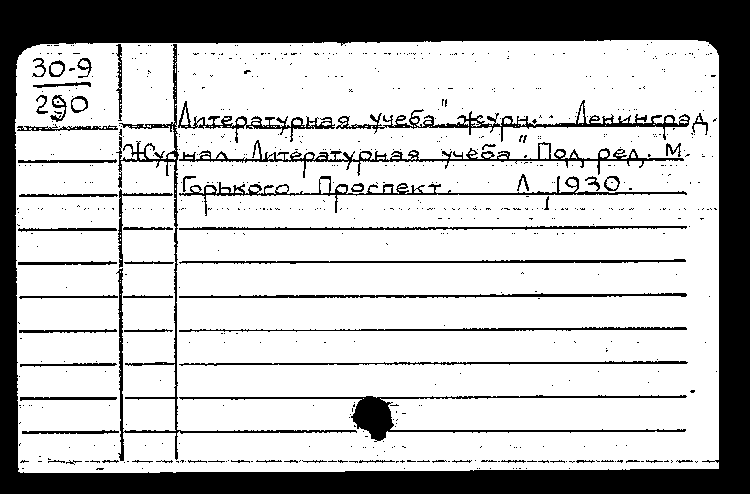 30-9
290
„Литературная учеба" журн. Ленинград.
Журнал „Литературная учеба". Под ред. М.
Горького. Проспект. Л., 1930.